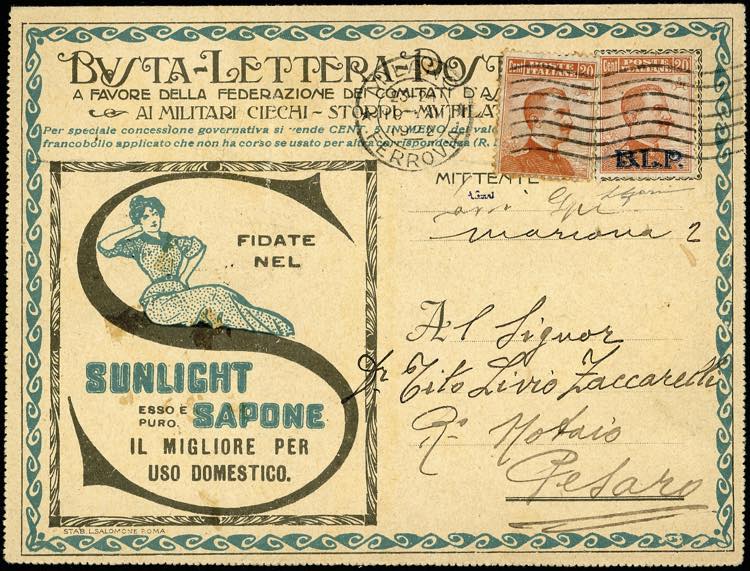 BUSTA-LETTERA-POST
A FAVORE DELLA FEDERAZIONE DEI COMITATI D'AS
AI MILITARI CIECHI - STORPI - MUTILA
Per speciale concessione governativa si vende CENT. 5 IN MENO del valo
francobollo applicato che non ha corso se usato per altra corrispondenza (R.
Cent. POSTE ITALIANE 20
Cent. POSTE ITALIANE 20
B.L.P.
FERROVIA
MITTENTE
2
FIDATE
NEL
SUNLIGHT
ESSO È
PURO.
SAPONE
IL MIGLIORE PER
USO DOMESTICO.
STAB. L. SALOMONE ROMA
Al Signor
Dr Tito Livio Zaccarelli
R° Notaio
Pesaro